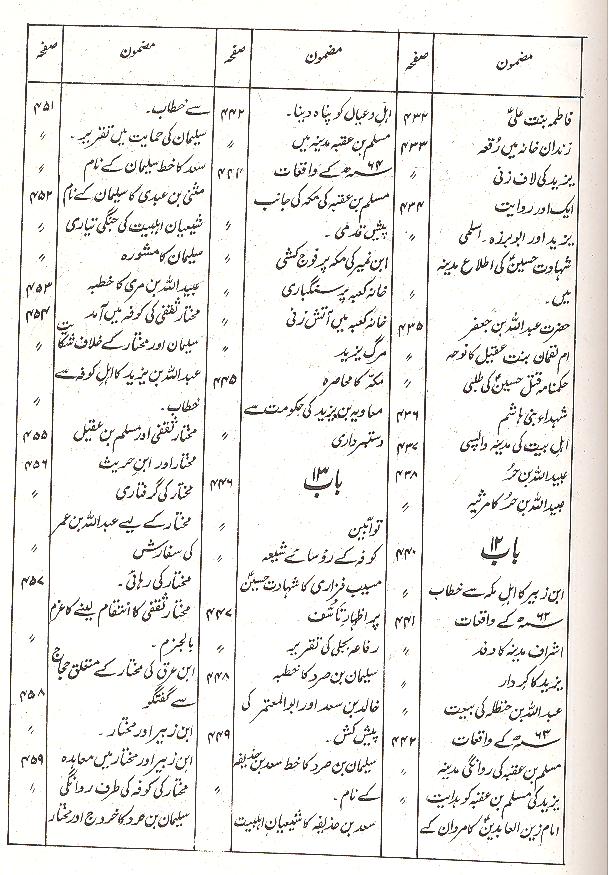 مضمون صفحہ
فاطمہ بنت علیؑ ۴۳۲
زندان خانہ میں رُقعہ ۴۳۳
یزید کی لاف زنی 〃
ایک اور روایت ۴۳۴
یزید اور ابو برزہ اسلمی 〃
شہادت حسینؑ کی اطلاع مدینہ
میں۔ 〃
حضرت عبداللہ بن جعفر ۴۳۵
ام لقمان بنت عقیل کا نوحہ 〃
حکمنامہ قتل حسینؑ کی طلبی 〃
شہداء بنی ہاشم ۴۳۶
اہل بیت کی مدینہ واپسی ۴۳۷
عبید اللہ بن حُر ۴۳۸
عبید اللہ بن حُر کا مرثیہ 〃
باب ۱۲ ۴۴۰
ابن زبیر کا اہل مکہ سے خطاب 〃
۶۲ھ کے واقعات ۴۴۱
اشراف مدینہ کا وفد 〃
یزید کا کردار 〃
عبداللہ بن حنظلہ کی بیعت 〃
۶۳ھ کے واقعات ۴۴۲
مسلم بن عقبہ کی روانگی مدینہ 〃
یزید کی مسلم بن عقبہ کو ہدایت 〃
امام زین العابدینؑ کا مروان کے
مضمون صفحہ
اہل و عیال کو پناہ دینا۔ ۴۴۲
مسلم بن عقبہ مدینہ میں 〃
۶۴ھ کے واقعات ۴۴۴
مسلم بن عقبہ کی مکہ کی جانب
پیش قدمی۔ 〃
ابن نمیر کی مکہ پر فوج کشی 〃
خانہ کعبہ پر سنگباری 〃
خانہ کعبہ میں آتش زنی 〃
مرگ یزید 〃
مکہ کا محاصرہ ۴۴۵
معاویہ بن یزید کی حکومت سے
دستبرداری 〃
باب ۱۳ ۴۴۶
توابین
کوفہ کے رؤسائے شیعہ 〃
مسیب فزاری کا شہادت حسینؑ
پر اظہار تاسف ۴۴۷
رفاعہ بجلی کی تقریر 〃
سلیمان بن صرد کا خطبہ ۴۴۸
خالد بن سعد اور ابوالمعتمر کی
پیش کش۔ ۴۴۹
سلیمان بن صرد کا خط سعد بن حذیفہ
کے نام۔ 〃
سعد بن حذیفہ کا شیعیان اہلبیت
مضمون صفحہ
سے خطاب۔ ۴۵۱
سلیمان کی حمایت میں تقریر۔ 〃
سعد کا خط سلیمان کے نام 〃
مثنیٰ بن عبدی کا سلیمان کے نام ۴۵۲
شیعیان اہلبیت کی جنگی تیاری 〃
سلیمان کا مشورہ 〃
عبید اللہ بن مری کا خطبہ ۴۵۳
مختار ثقفی کی کوفہ میں آمد ۴۵۴
سلیمان اور مختار کے خلاف شکایت 〃
عبداللہ بن یزید کا اہل کوفہ سے
خطاب۔ 〃
مختار ثقفی اور مسلم بن عقیل ۴۵۵
مختار اور ابن حریث ۴۵۶
مختار کی گرفتاری 〃
مختار کے لیے عبداللہ بن عمر
کی سفارش 〃
مختار کی رہائی۔ ۴۵۷
مختار ثقفی کا انتقام لینے کا عزم
بالجزم۔ 〃
ابن عرق کی مختار کے متعلق حجاج
سے گفتگو ۴۵۸
ابن زبیر اور مختار۔ 〃
ابن زبیر اور مختار میں معاہدہ ۴۵۹
مختار کی کوفہ کی طرف روانگی 〃
سلیمان بن صرد کا خروج اور مختار